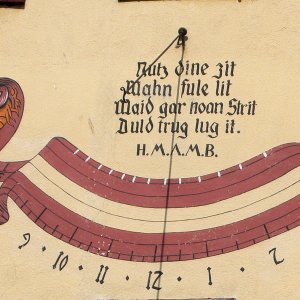 Nutz dine zit
Mahn fule lit
Maid gar noan Strit
Duld trug lug it.
H.M.A.M.B.
9 · 10 · 11 · 12 · 1 · 2